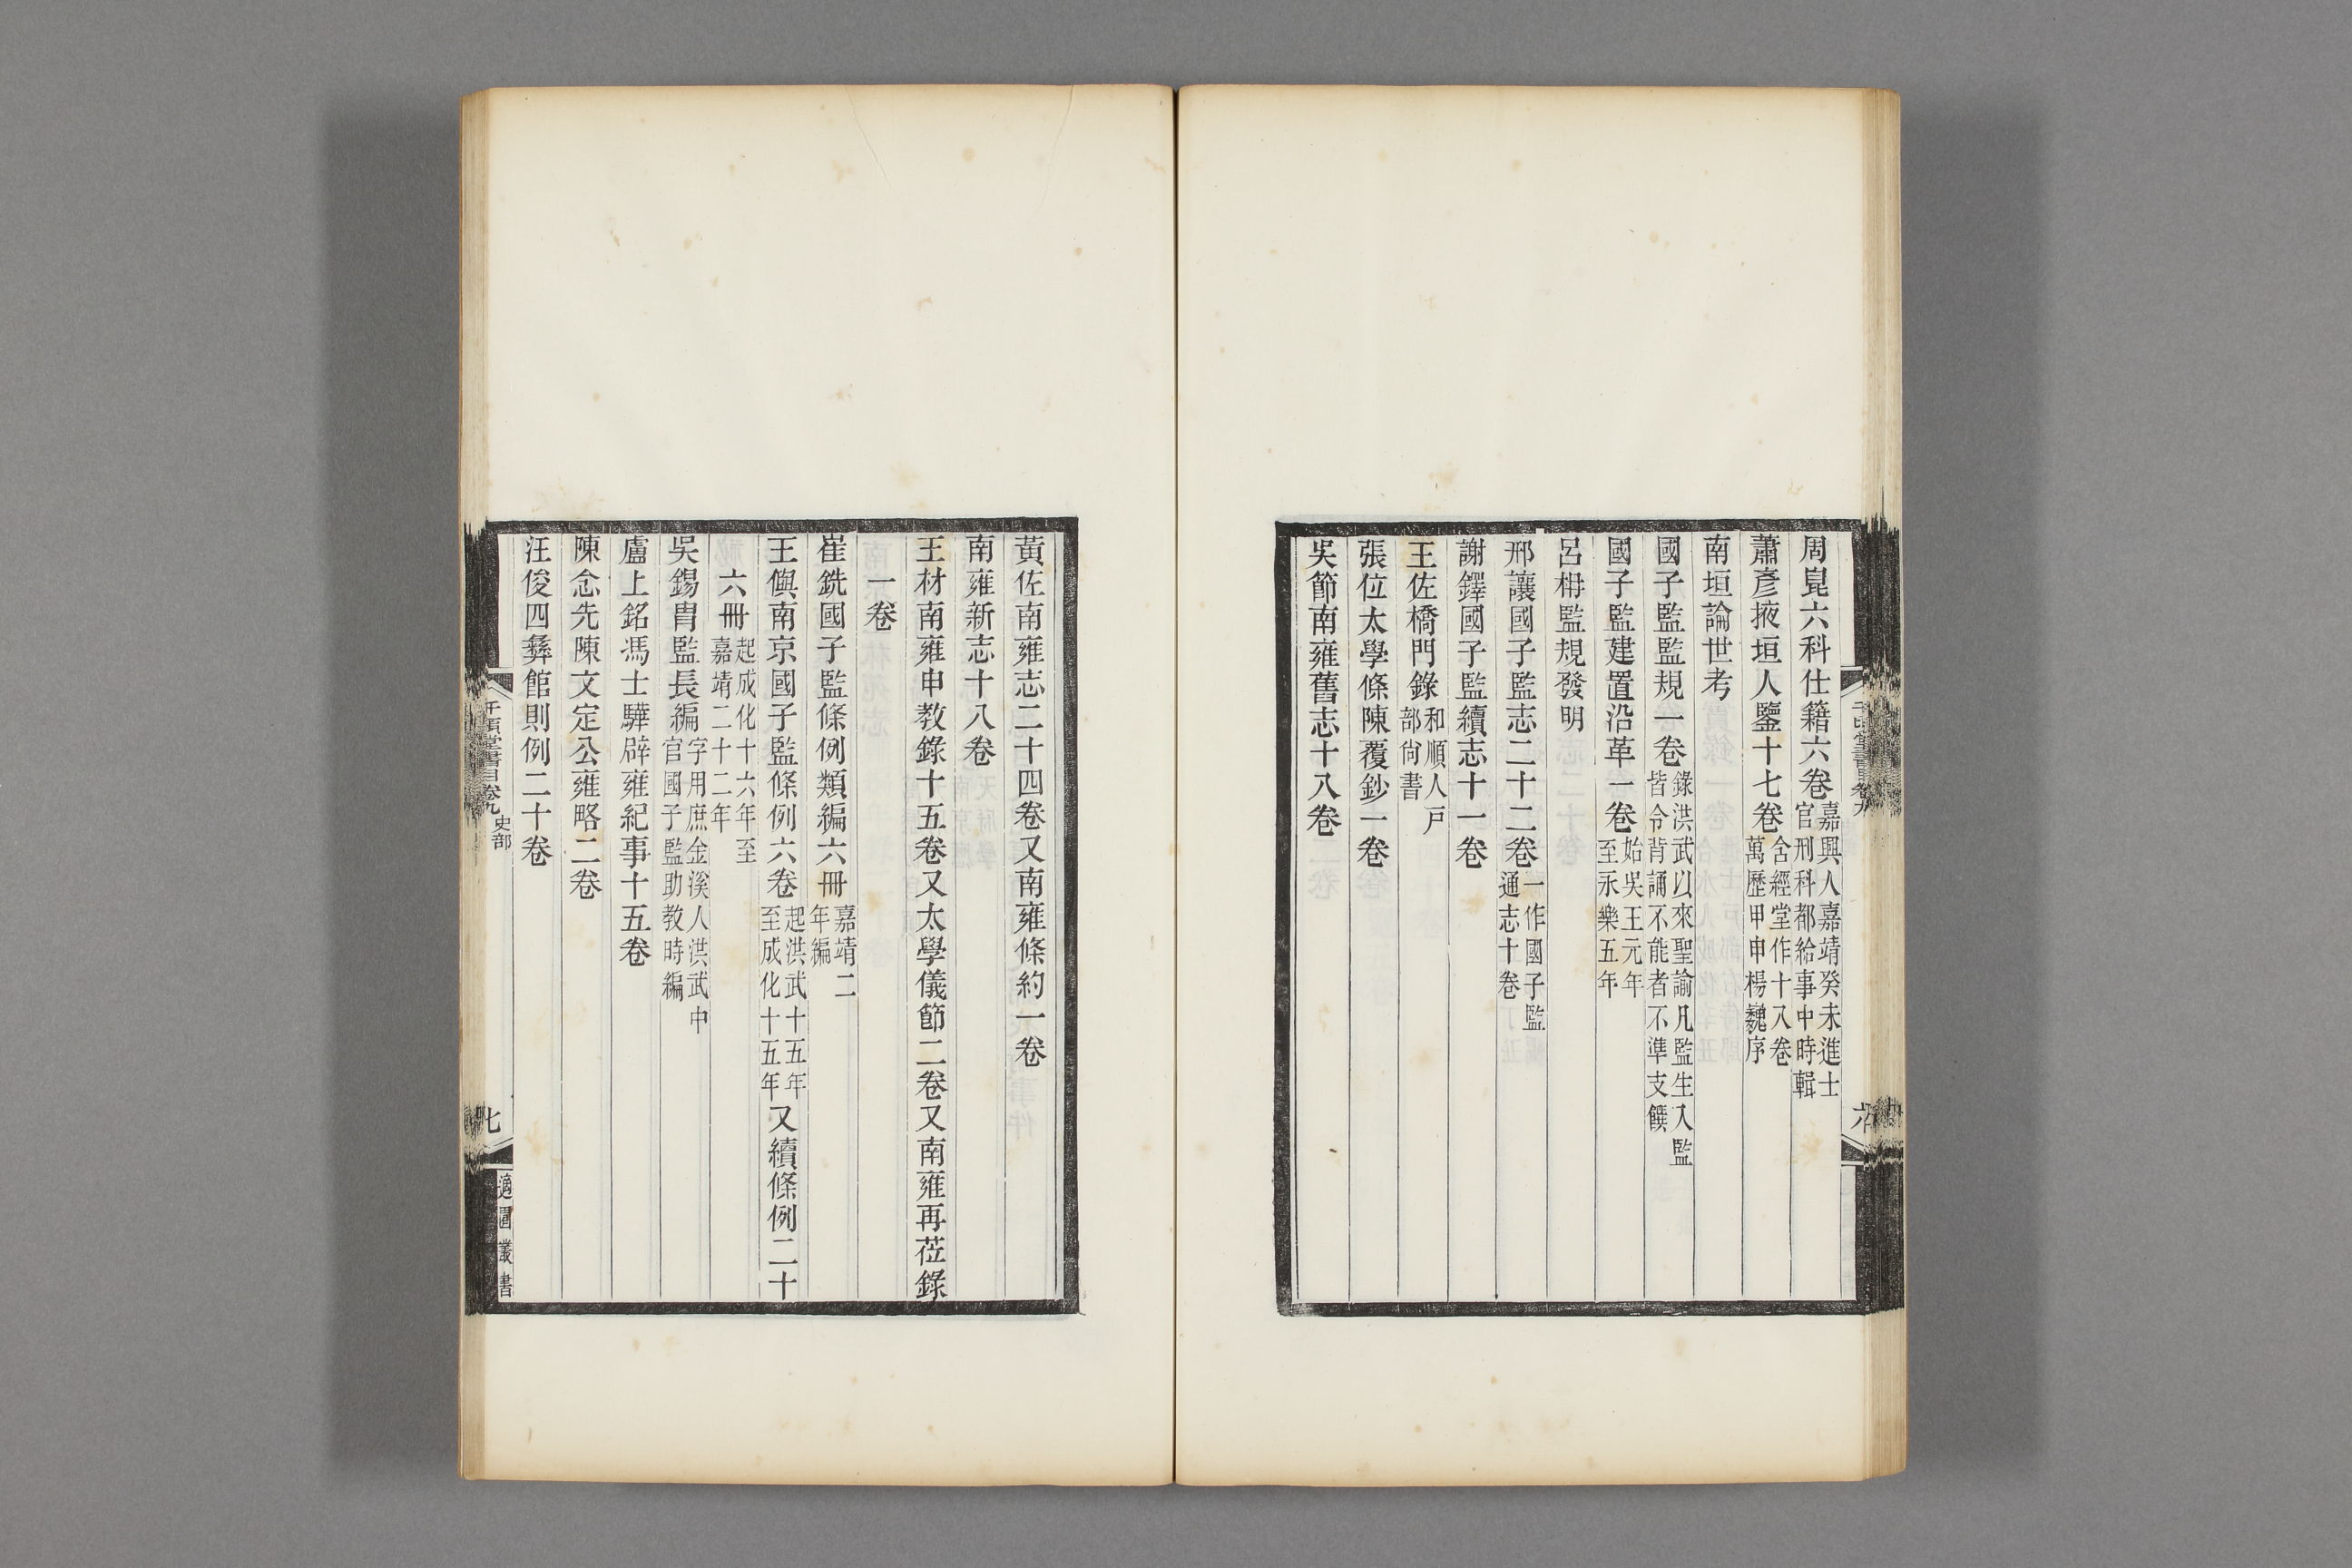 周㫤六科仕籍六卷嘉興人嘉靖癸未進士官刑科都給事中時輯
蕭彥掖垣人鑒十七卷含經堂作十八卷萬歷甲申楊巍序
南垣論世考
國子監監規一卷錄洪武以來聖諭凡監生入監皆令背誦不能者不準支饌
國子監建置沿革一卷始吳王元年至永樂五年
呂柟監規發明
邢讓國子監志二十二卷一作國子監通志十卷
謝鐸國子監續志十一卷
王佐橋門錄和順人戸部尙書
張位太學條陳覆鈔一卷
吳節南雍舊志十八卷
黃佐南雍志二十四卷又南雍條約一卷
南雍新志十八卷
王材南雍申教錄十五卷又太學儀節二卷又南雍再蒞錄
一卷
崔銑國子監條例類編六冊嘉靖二年編
王㒜南京國子監條例六卷起洪武十五年至成化十五年又續條例二十
六冊起成化十六年至嘉靖二十二年
吳錫冑監長編字用庶金溪人洪武中官國子監助教時編
盧上銘馮士驊辟雍紀事十五卷
陳念先陳文定公雍略二卷
汪俊四彝館則例二十卷
千頃堂書目卷九 史部
七
適園叢書